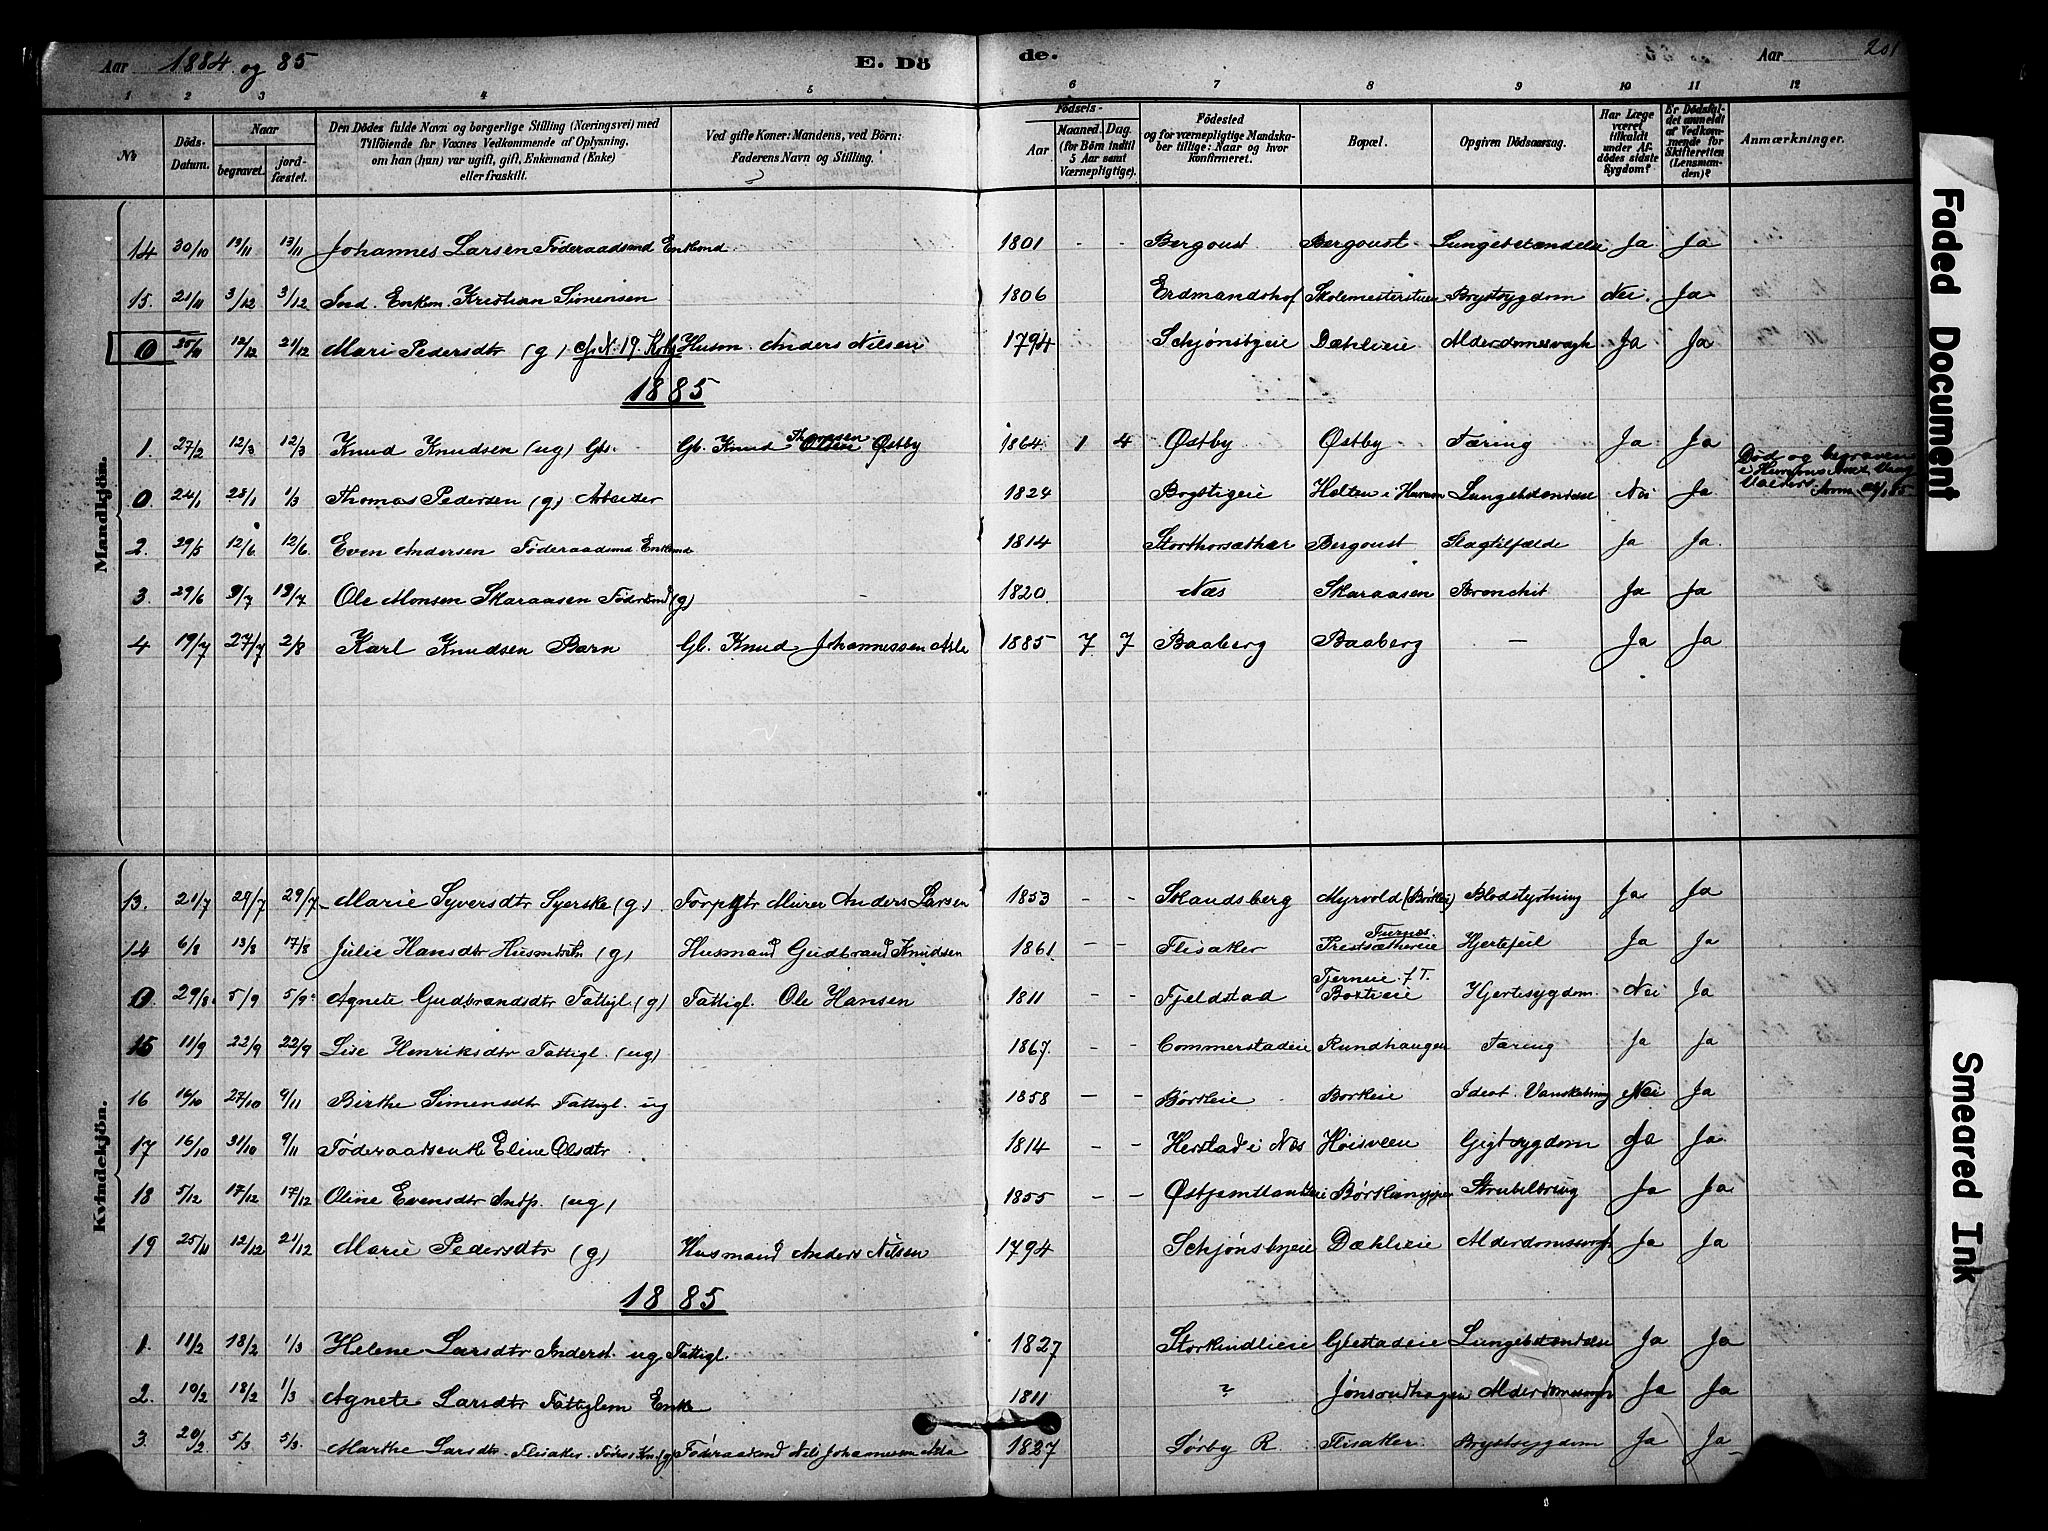 Aar 1884 og 85 E. Dö de. Aar 201
1 2 3 4 5 6 7 8 9 10 11 12
Nr. Döds-Datum. Naar begravet. jord-fæstet. Den Dödes fulde Navn og borgerlige Stilling (Næringsvei) med Tilföiende for Voxnes Vedkommende af Oplysning, om han (hun) var ugift, gift, Enkemand (Enke) eller fraskilt. Ved gifte Koner: Mandens, ved Börn: Faderens Navn og Stilling. Födsels- Aar Maaned. Dag. (for Börn indtil 5 Aar samt Værnepligtige). Födested og for værnepligtige Mandskaber tillige: Naar og hvor Konfirmeret. Bopæl. Opgiven Dödsaarsag. Har Læge været tilkaldt under Afdödes sidste Sygdom? Er Dödsfaldet anmeldt af Vedkommende for Skifteretten (Lensmanden)? Anmærkninger.
Mandkjön.
14 30/10 13/11 13/11 Johannes Larsen Föderaadsmd Enkemd 1801 - - Bergoust Bergoust Lungebetændelse Ja Ja
15. 21/11 3/12 3/12 Ind. Enkem. Kristian Simensen 1806 Erdmandshof Skolemesterstuen Brystsygdom Nei. Ja
0 25/11 12/12 21/12 Mari Pedersdtr (g) cfr. N. 19. Kvkj Husm. Anders Nilsen 1794 Schjønsbyeie Dæhlieie Alderdomssvagh Ja Ja
1885
1. 27/2 12/3 12/3 Knud Knudsen (ug) Gbs. Gb. Knud Thoresen Olsen Østby 1864. 1 4 Østby Østby Tæring Ja Ja
0. 24/1 28/1 1/3 Thomas Pedersen (g) Arbeider 1824 Brystigeie Holten i Hurum Lungebetændelse Nei Ja Död og begraven i Hurums Anex Vang Valders
2. 29/5 12/6 12/6. Even Andersen Föderaadsmd Enkemd 1814 Storthorsæther Bergoust Slagtilfælde Ja Ja.
3. 29/6 9/7 19/7 Ole Monsen Skaraasen Föderaadsmd (g) - 1820. Næs Skaraasen Bronchit Ja Ja
4 19/7 27/7 2/8 Karl Knudsen Barn Gb. Knud Johannessen Asla 1885 7 7 Baaberg Baaberg - Ja Ja
Kvindekjön.
13. 21/7 29/7 29/7 Marie Syversdtr Syerske (g) Torpgtr Murer Anders Larsen 1853 - - Strandsberg Myrvold (Börkeie) Blodstyrtning Ja Ja
14 6/8 13/8 17/8 Julie Hansdtr Husmdskn (g) Husmand Gudbrand Knudsen 1861 - - Flisaker Furnes. Prestsæthereie Hjertefeil Ja Ja
0. 29/8. 5/9 5/9 Agnete Gudbrandsdtr Fattigl. (g) Fattigl. Ole Hansen 1811 - - Fjeldstad Tjerneie f. T. Hjertesygdom. Nei Ja
15 11/9 22/9 22/9 Lise Henriksdtr Fattigl. (ug) 1867. - - Commerstadeie Rundhaugen Tæring Ja Ja
16 16/10 27/10 9/11 Birthe Simensdtr Fattigl. ug 1858 - - Börkeie Borkeie Idiot. Vanskabning Nei Ja
17 16/10 31/10 9/11 Föderaadsenke Eline Olsdtr 1814 - - Herstad i Næs Hoisveen Gigtsygdom Ja Ja
18 5/12 17/12 17/12 Oline Evensdtr Indp. (ug) 1855 - - Østjemtlandseie Strubelbrug Ja Ja
19 25/11 12/12 21/12 Marie Pedersdtr (g) Husmand Anders Nilsen 1794 Schjönsbyeie Dæhlieie Alderdomssvagh. Ja Ja
1885
1. 11/2 18/2 1/3 Helene Larsdtr Inderst. ug Fattigl. 1827 Storkindlieie Gjestadeie Lungebetændelse Ja Ja
2. 10/2 18/2 1/3 Agnete Larsdtr Fattiglem Enke 1811 ? Jönsrudhagen Alderdomssvagh Ja Ja
3. 20/2 5/3 5/3. Marthe Larsdtr Flisaker. Föders Kn. (g) Föderaadsmd Nils Johannessen Asla 1827 Sörby R. Flisaker. Brystsygdom Ja Ja
Faded Document
Smeared Ink